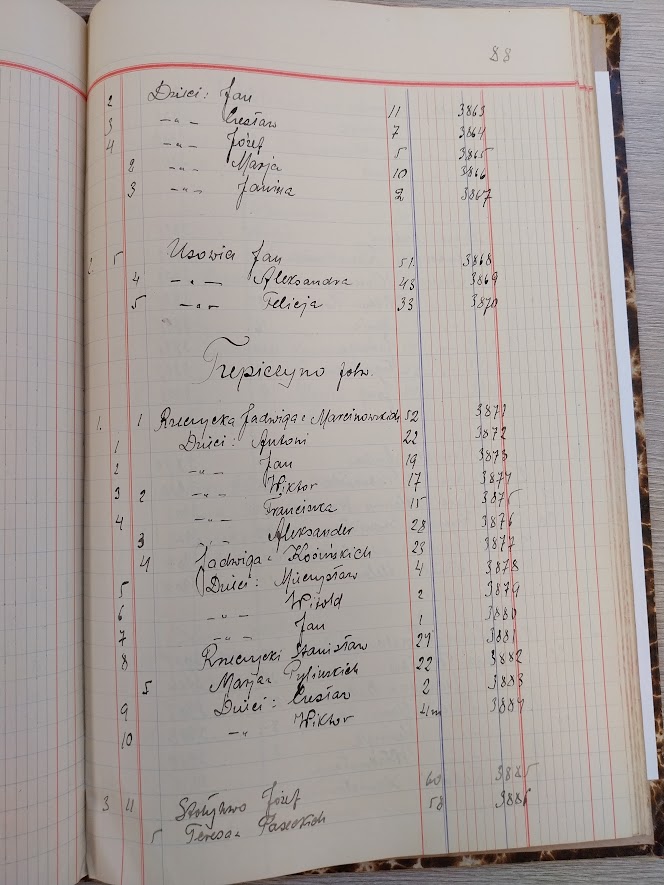 88
2 Dzieci: Jan 11 3863
3 -"- Czesław 7 3864
4 -"- Józef 5 3865
2 -"- Marja 10 3866
3 -"- Janina 2 3867
5 Usowicz Jan 51 3868
4 -"- Aleksandra 43 3869
5 -"- Felicja 33 3870
folw.
1. 1 Rzeczycka Jadwiga z Marcinowskich 52 3871
1 Dzieci: Antoni 22 3872
2 -"- Jan 19 3873
3 -"- Wiktor 17 3874
2 -"- Franciszka 15 3875
4 -"- Aleksander 28 3876
3 Jadwiga z 23 3877
4 Dzieci: Mieczysław 4 3878
5 -"- Witold 2 3879
6 -"- Jan 1 3880
7 Rzeczycki Stanisław 29 3881
8 Marja z 22 3882
5 Dzieci: Czesław 2 3883
9 -"- Wiktor 4m 3884
10
3 11 Józef 60 3885
5 Teresa z Paseckich 58 3886